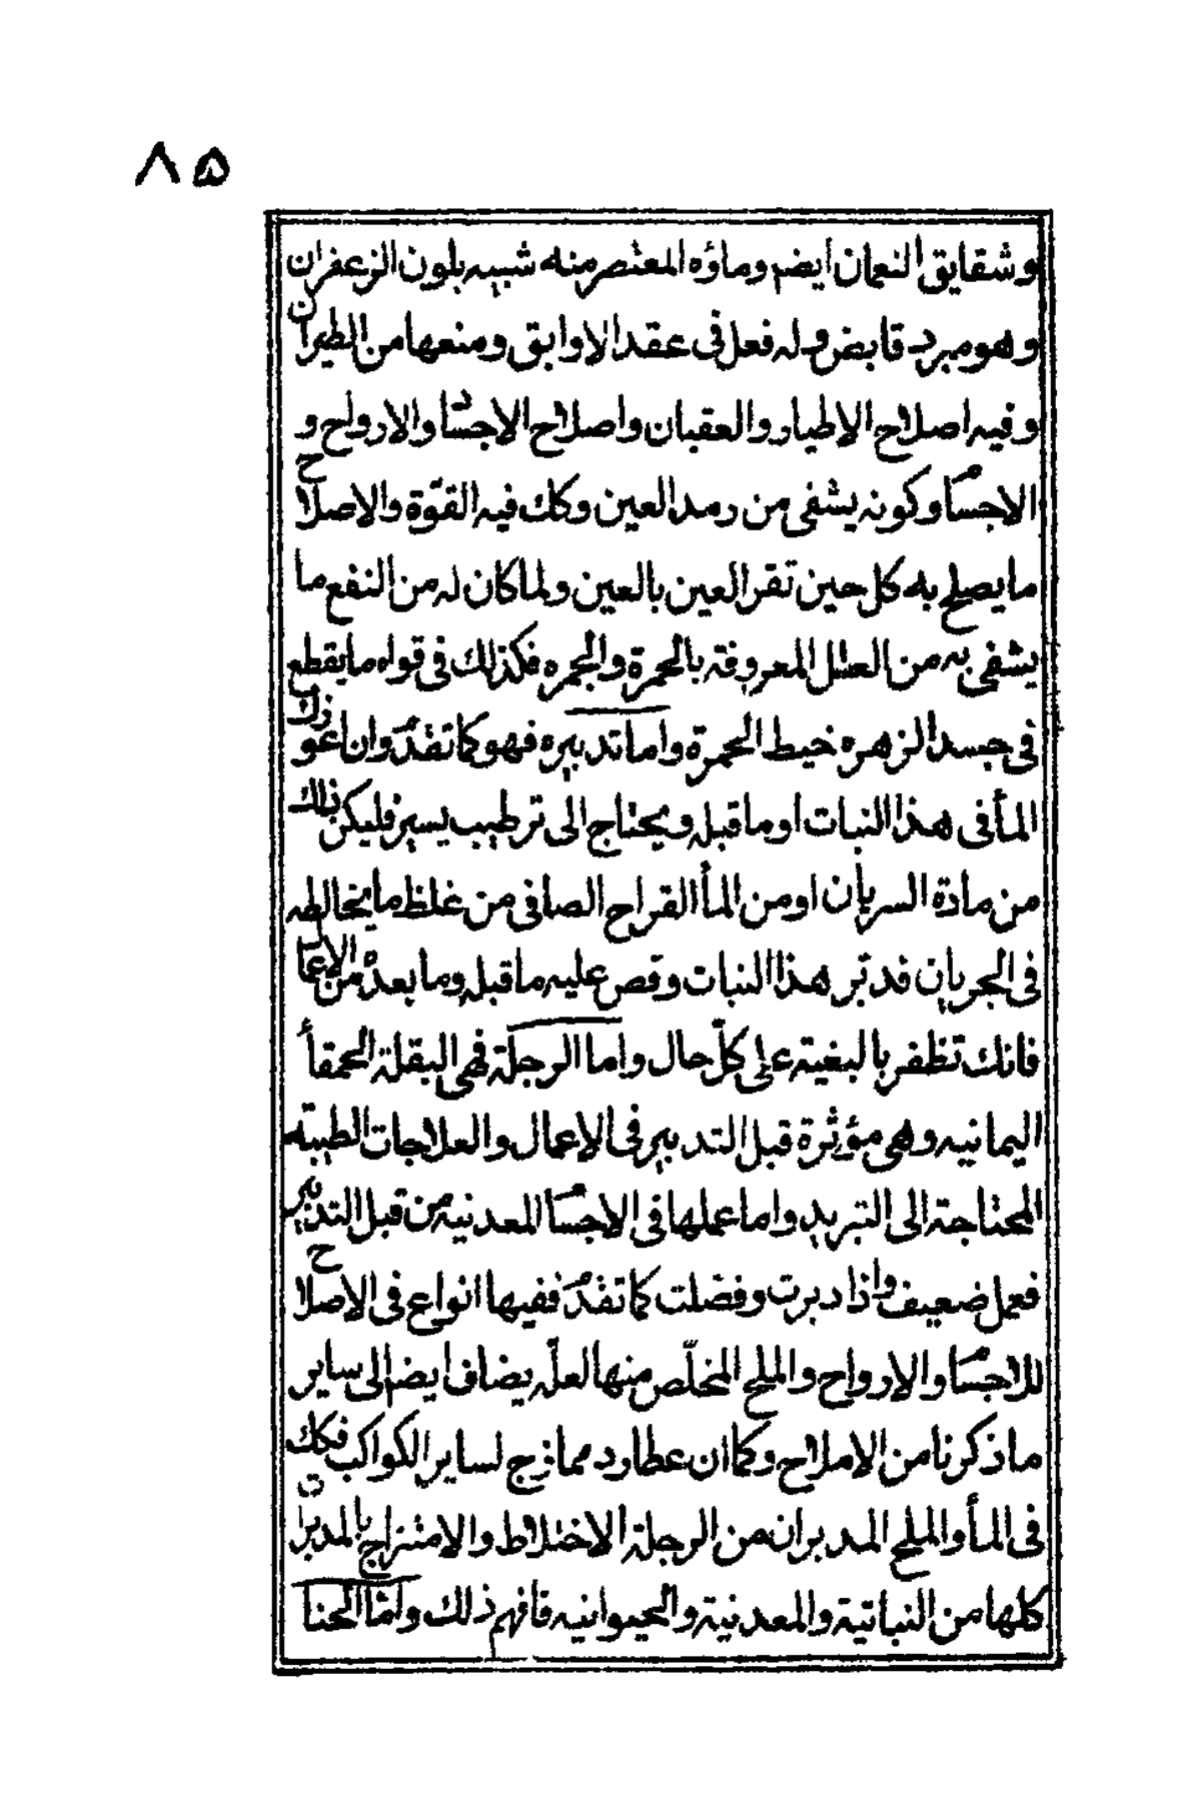 ٨٥
وشقايق النعمان ايضم وماؤه المعتصر منه شبيه بلون الزعفران
وهو مبرد قابض وله فعل في عقد الاوابق ومنعها من الطيران
وفيه اصلاح الاطيار والعقبان واصلاح الاجساد والارواح و
الاجسام وكونه يشفى من رمد العين وكك فيه القوّة والاصلاح
ما يصلح به كل حين تقر العين بالعين ولما كان له من النفع ما
يشفى به من العلل المعروفة بالحمرة والجمره فكذلك في قواه ما يقطع
في جسد الزهره خيط الحمرة واما تدبيره فهو كما تقدم وان اعوزك
المأ في هذا النبات او ما قبله ويحتاج الى ترطيب يسير فليكن ذلك
من مادة السريان او من المأ القراح الصافى من غلظ ما يخالطه
في الجريان فدتبر هذا النبات وقص عليه ما قبله وما بعده من الاعمال
فانك تظفر بالبغية على كلّ حال واما الرجلة فهى البقلة الحمقأ
اليمانيه وهى مؤثرة قبل التدبير في الاعمال والعلاجات الطبيّه
المحتاجة الى التبريد واما عملها في الاجسام المعدنية من قبل التدبير
فعمل ضعيف واذا دبرت وفضلت كما تقدم ففيها انواع في الاصلاح
للاجسام والارواح والملح المخلّص منها لعلّه يضاف ايضم الى ساير
ما ذكرنا من الاملاح وكما ان عطارد ممازج لساير الكواكب فكك
في المأ والملح المدبران من الرجلة الاختلاط والامتزاج بالمدبرات
كلها من النباتية والمعدنية والحيوانيه فافهم ذلك وامّا الحنا